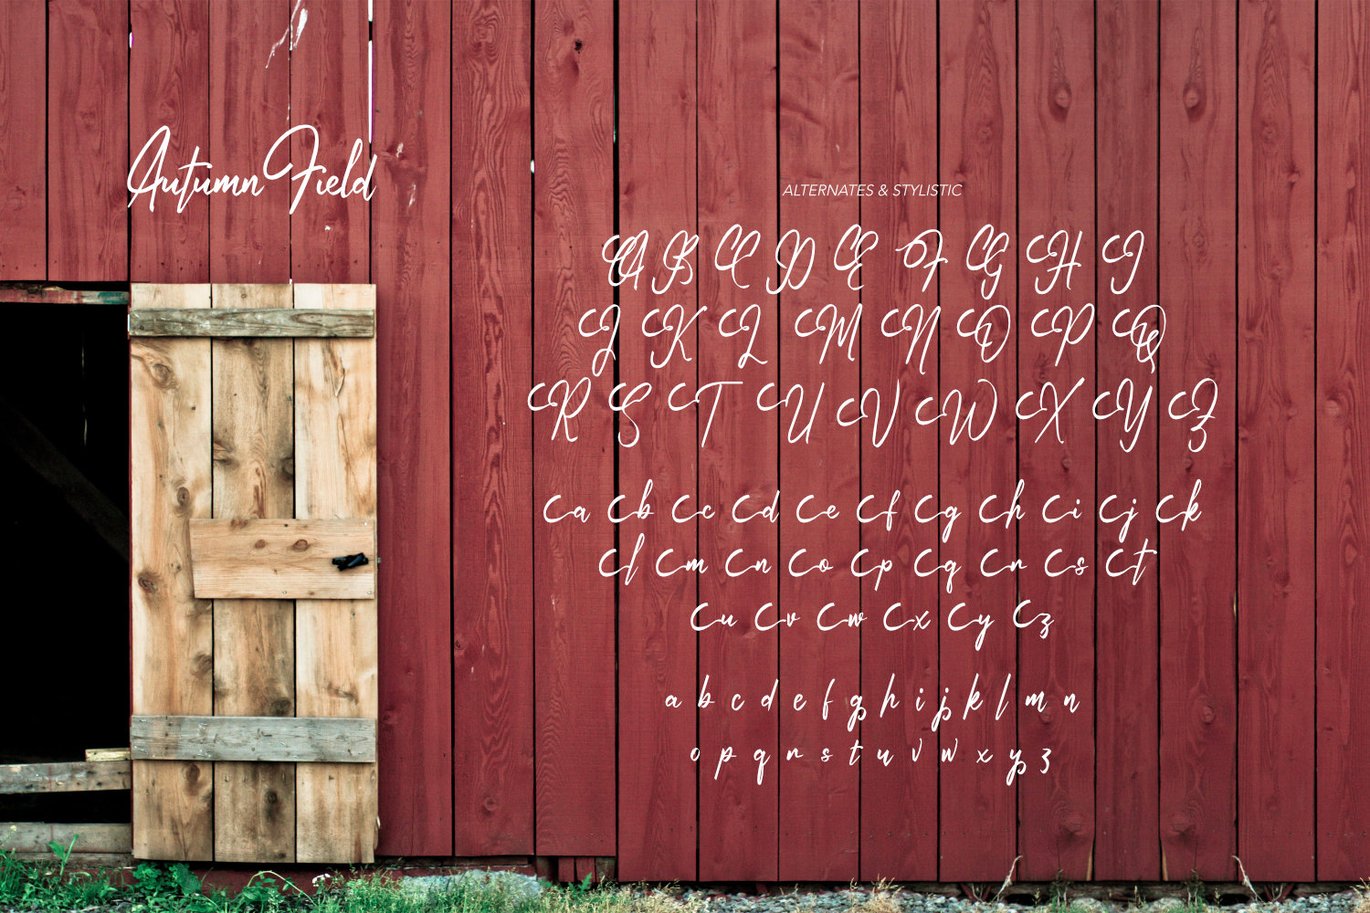 Autumn Field
ALTERNATES & STYLISTIC
A B C D E F G H I
J K L M N O P Q
R S T U V W X Y Z
a b c d e f g h i j k
l m n o p q r s t
u v w x y z
a b c d e f g h i j k l m n
o p q r s t u v w x y z